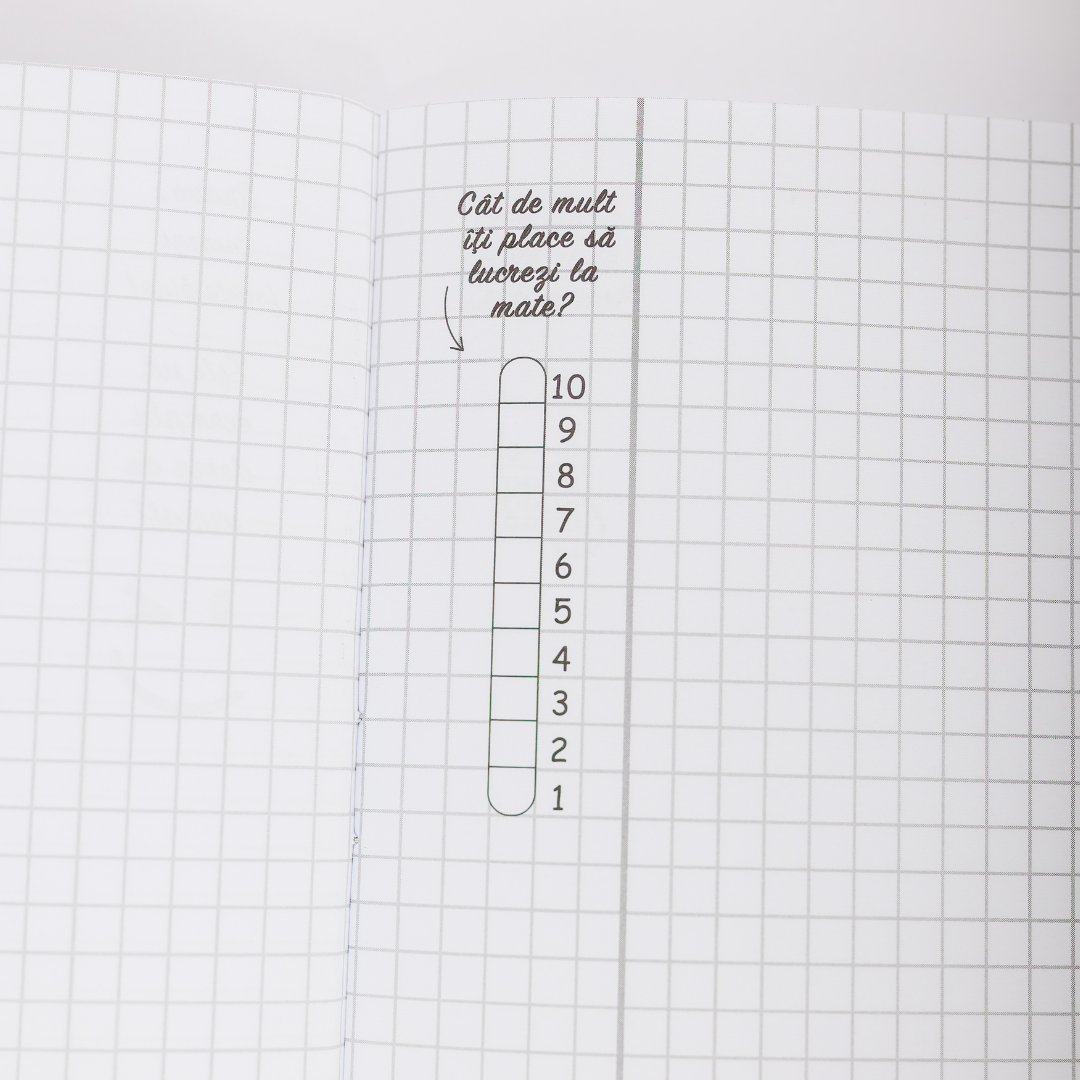 Cât de mult
îţi place să
lucrezi la
mate?
10
9
8
7
6
5
4
3
2
1